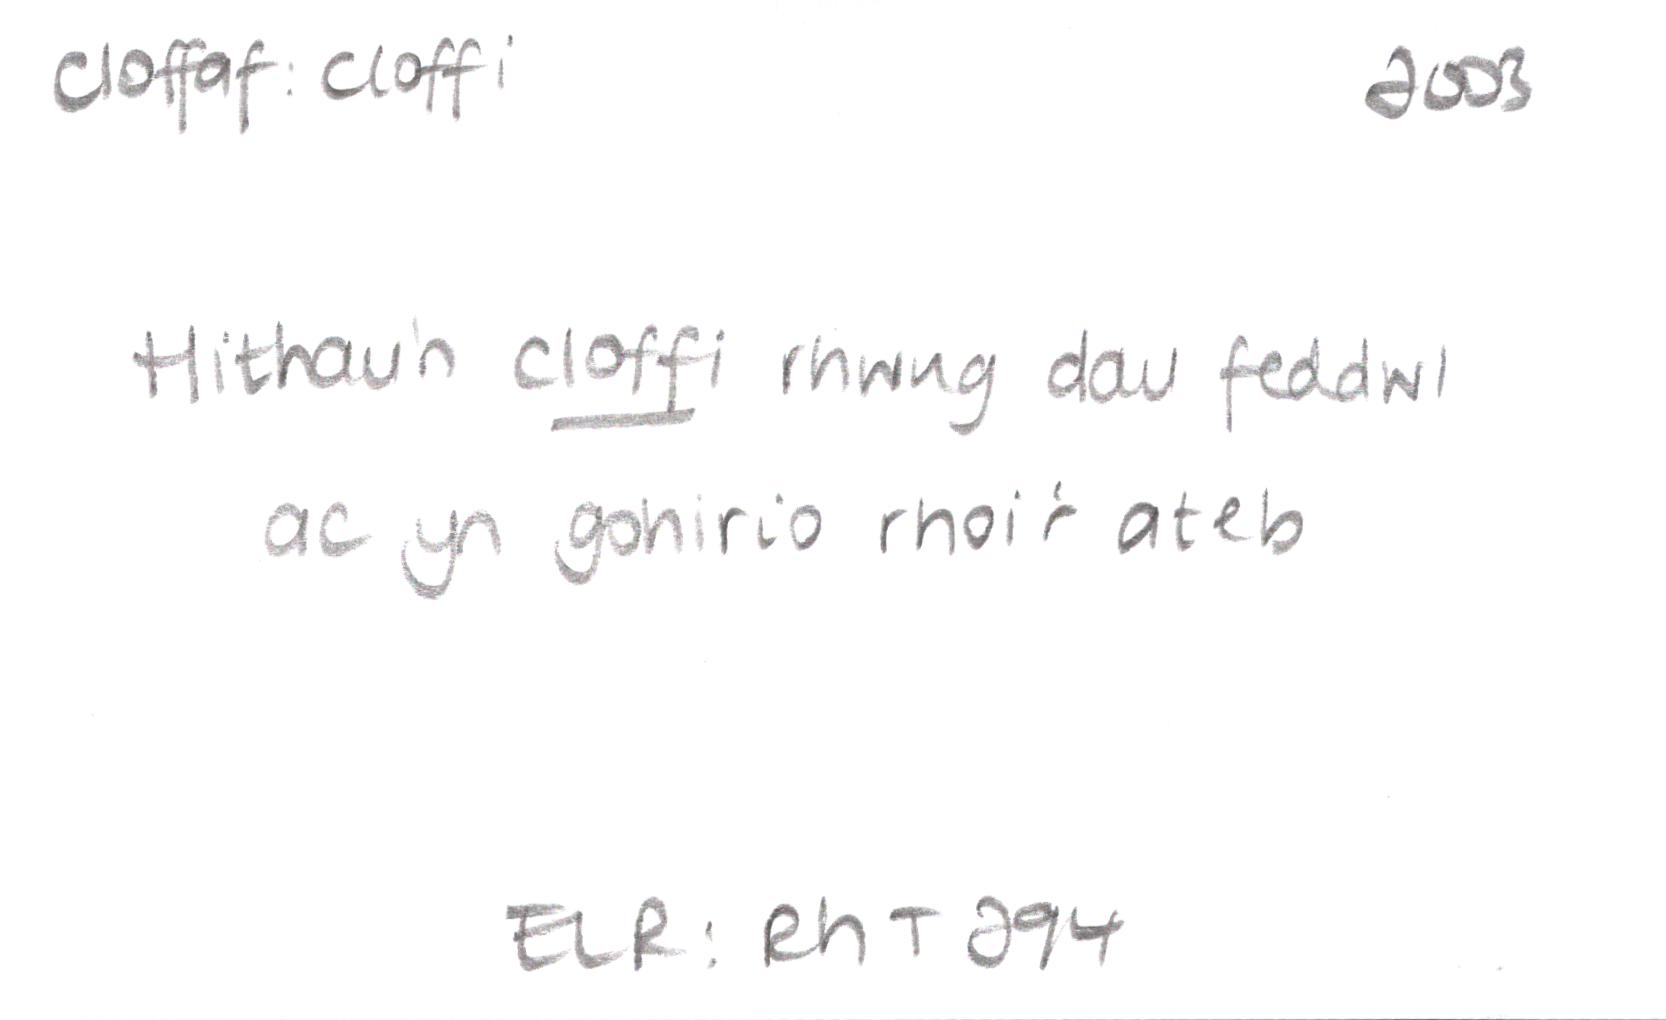 cloffaf: cloffi 2003
Hithau'n cloffi rhwng dau feddwl
ac yn gohirio rhoi'r ateb
ELR: RhT 294